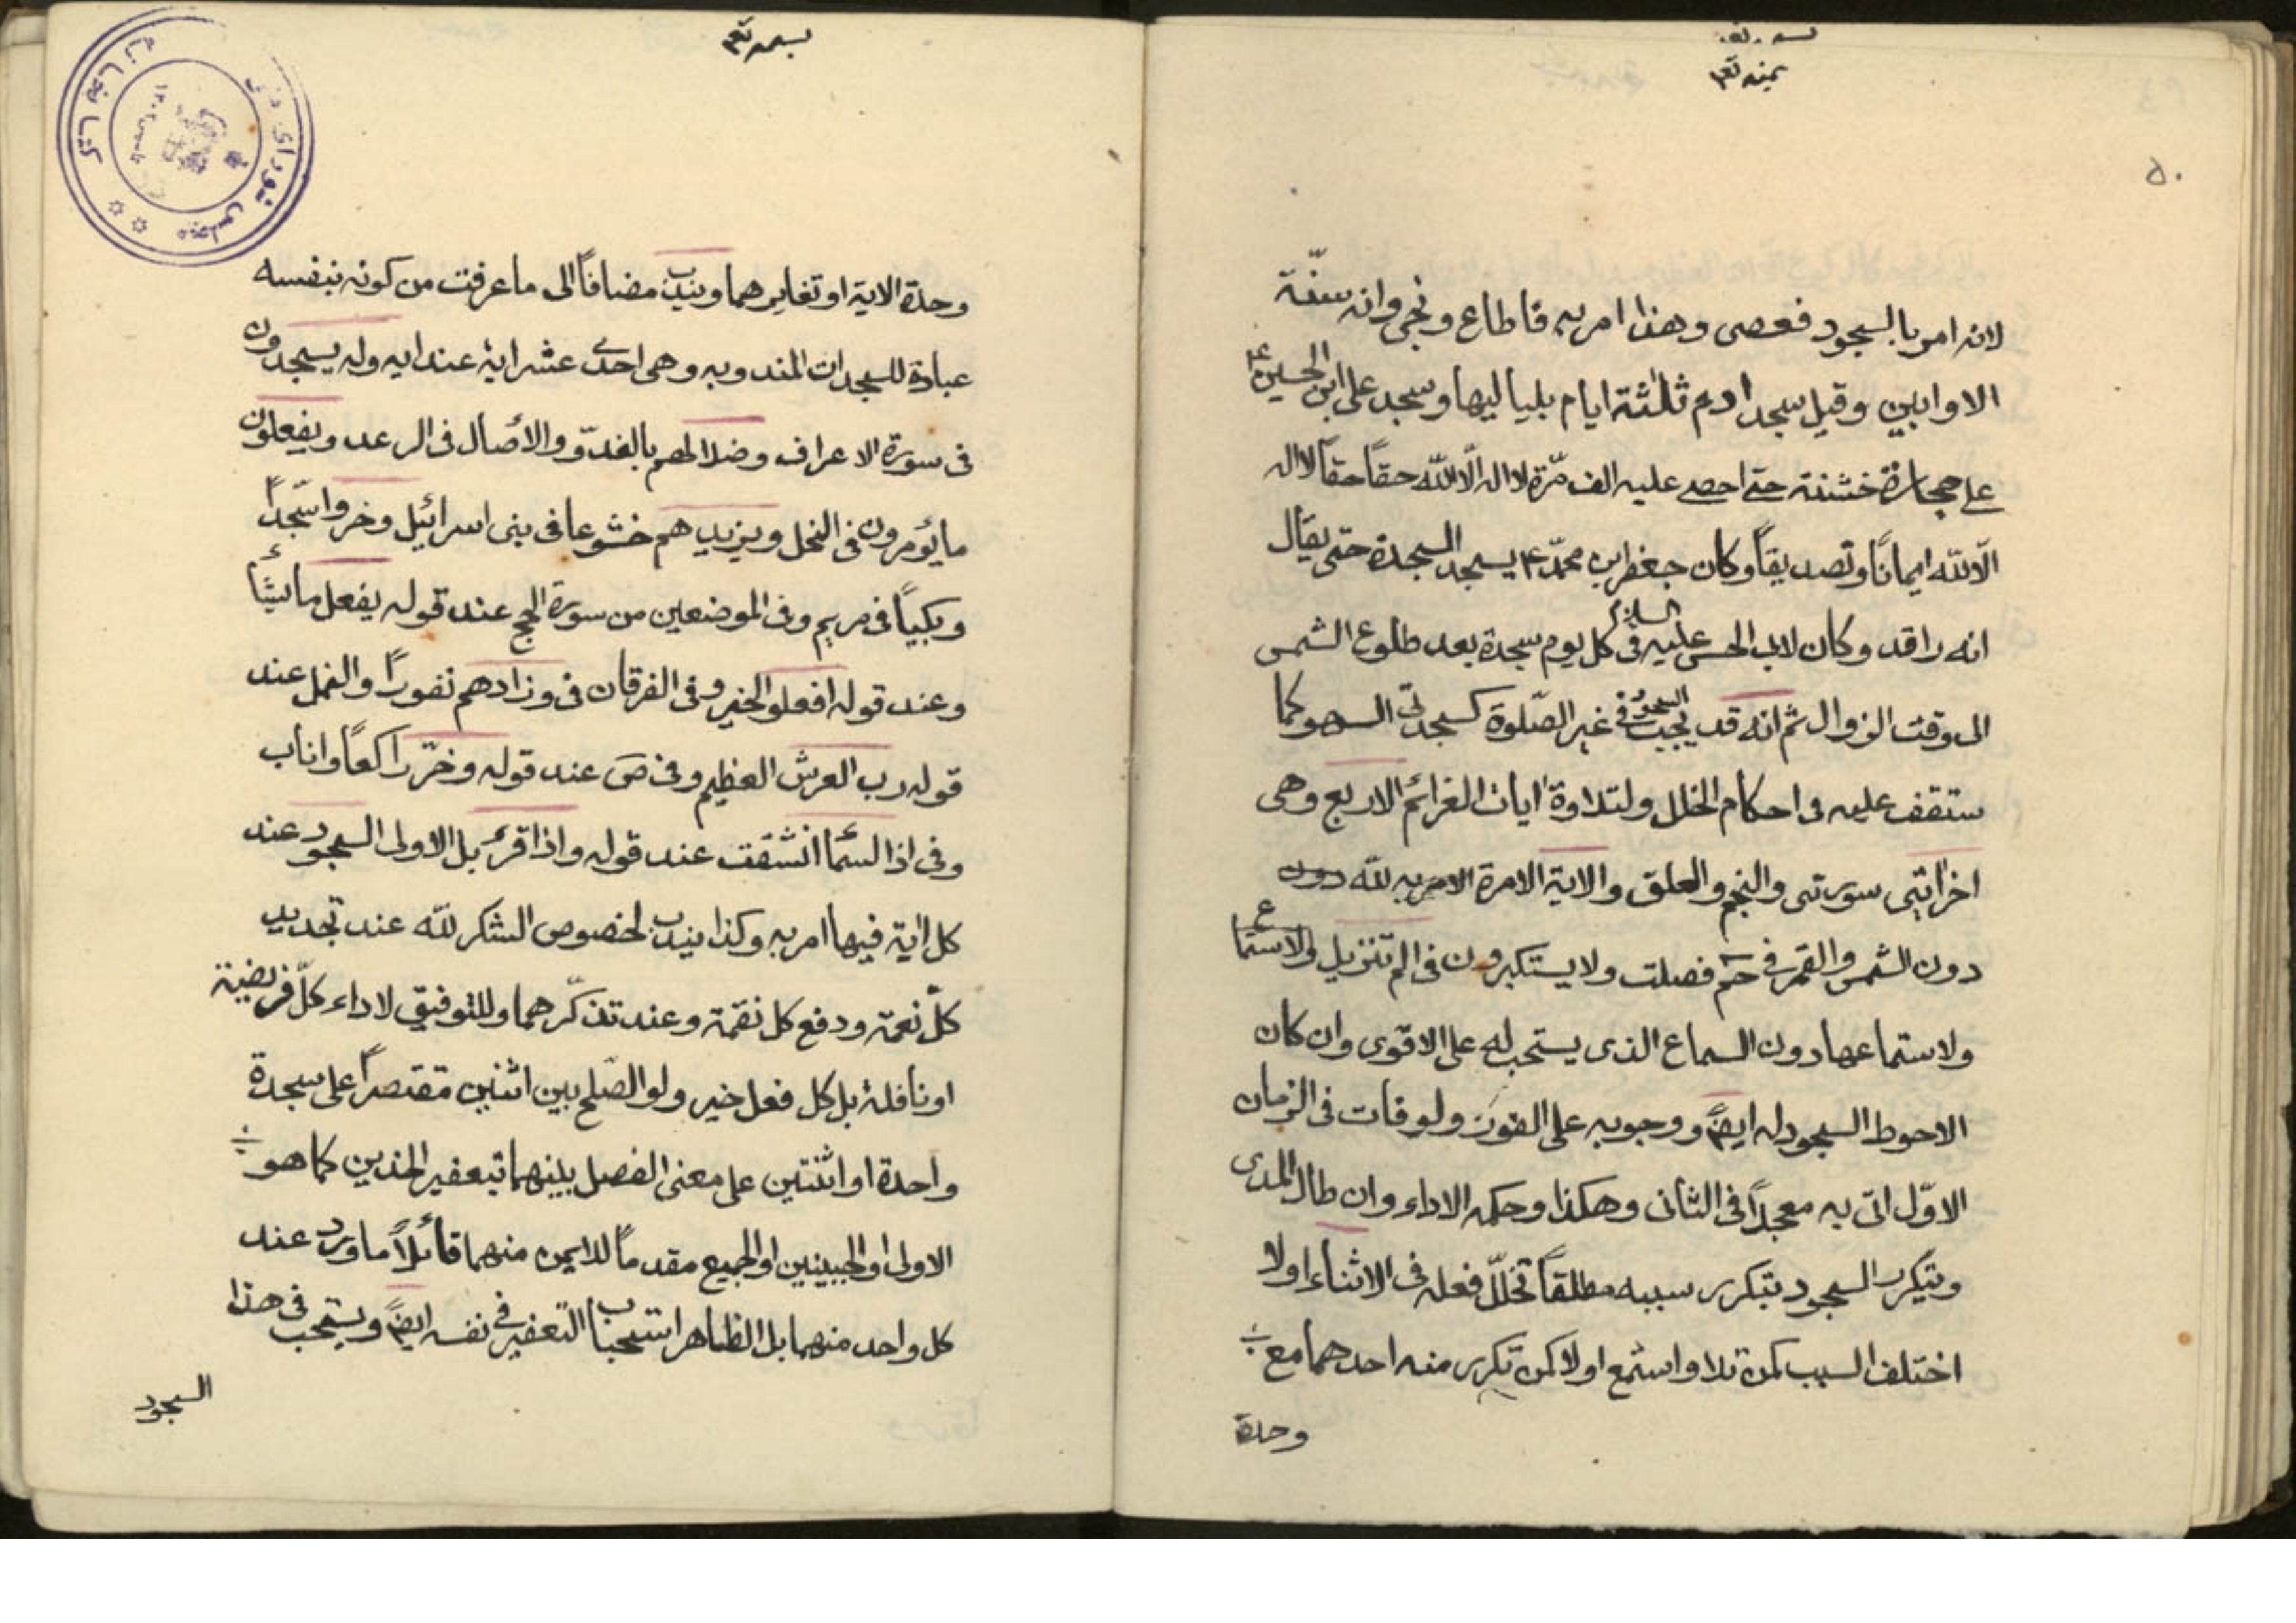 بسمه تع
يمنه تع
۵۰
لانه امر بالسجود فعصى وهذا امر به فاطاع ونجى وانه سنّة
الاوابين وقيل سجد ادم ثلثة ايام بلياليها وسجد على ابن الحسين ع
على حجارة خشنة حتى احصى عليه الف مرّة لا اله الّا الله حقاً حقاً لا اله
الّا الله ايماناً وتصديقاً وكان جعفر ابن محمّد ع يسجد السجدة حتى يقال
انه راقد وكان لابى الحسن عليه السلام فى كل يوم سجدة بعد طلوع الشمس
الى وقت الزوال ثم انه قد يجب السجود فى غير الصّلوة كسجدتى السهو كما
ستقف عليه فى احكام الخلل ولتلاوة ايات الغرائم الاربع وهى
اخر ايتى سورتى والنجم والعلق والاية الامرة الامر به لله دون
دون الشمس والقمر فى حم فصلت ولا يستكبرون فى الم تنزيل والاستماع
ولاستماعها دون السماع الذى يستحب له على الاقوى وان كان
الاحوط السجود له ايضً ووجوبه على الفور ولو فات فى الزمان
الاوّل اتى به معجلاً فى الثانى وهكذا وحكمه الاداء وان طال المدى
ويتكرر السجود بتكرر سببه مطلقاً تخلّل فعله فى الاثناء اولا
اختلف السبب كمن تلا واستمع اولا كمن تكرر منه احدهما مع
وحدة
بسمه تع
كتابخانه
مجلس شوراى ملى
وحدة الاية او تغايرهما ويندب مضافاً الى ما عرفت من كونه بنفسه
عبادة للسجدات المندوبه وهى احدى عشر اية عند ايه وله يسجدون
فى سورة الاعراف وضلالهم بالغدوّ والأصال فى الرعد ويفعلون
ما يؤمرون فى النحل ويزيدهم خشوعا فى بنى اسرائيل وخروا سجّداً
وبكياً فى مريم وفى الموضعين من سورة الحج عند قوله يفعل ما يشأ
وعند قوله افعلو الخير وفى الفرقان فى وزادهم نفوراً والنمل عند
قوله رب العرش العظيم وفى ص عند قوله وخرّ راكعاً واناب
وفى اذا السمأ انشقت عند قوله واذا قرئ بل الاولى السجود عند
كل اية فيها امر به وكذا يندب لخصوص الشكر لله عند تجديد
كلّ نعمة ودفع كل نقمة وعند تذكّرهما وللتوفيق لاداء كلّ فريضة
او نافلة بل كل فعل خير ولو الصّلح بين اثنين مقتصراً على سجدة
واحدة او اثنتين على معنى الفصل بينهما بتعفير الخدين كما هو
الاولى او الجبينين او الجميع مقدماً للايمن منهما قائلاً ما ورد عند
كل واحد منهما بل الظاهر استحباب التعفير فى نفسه ايضً ويستحب فى هذا
السجود